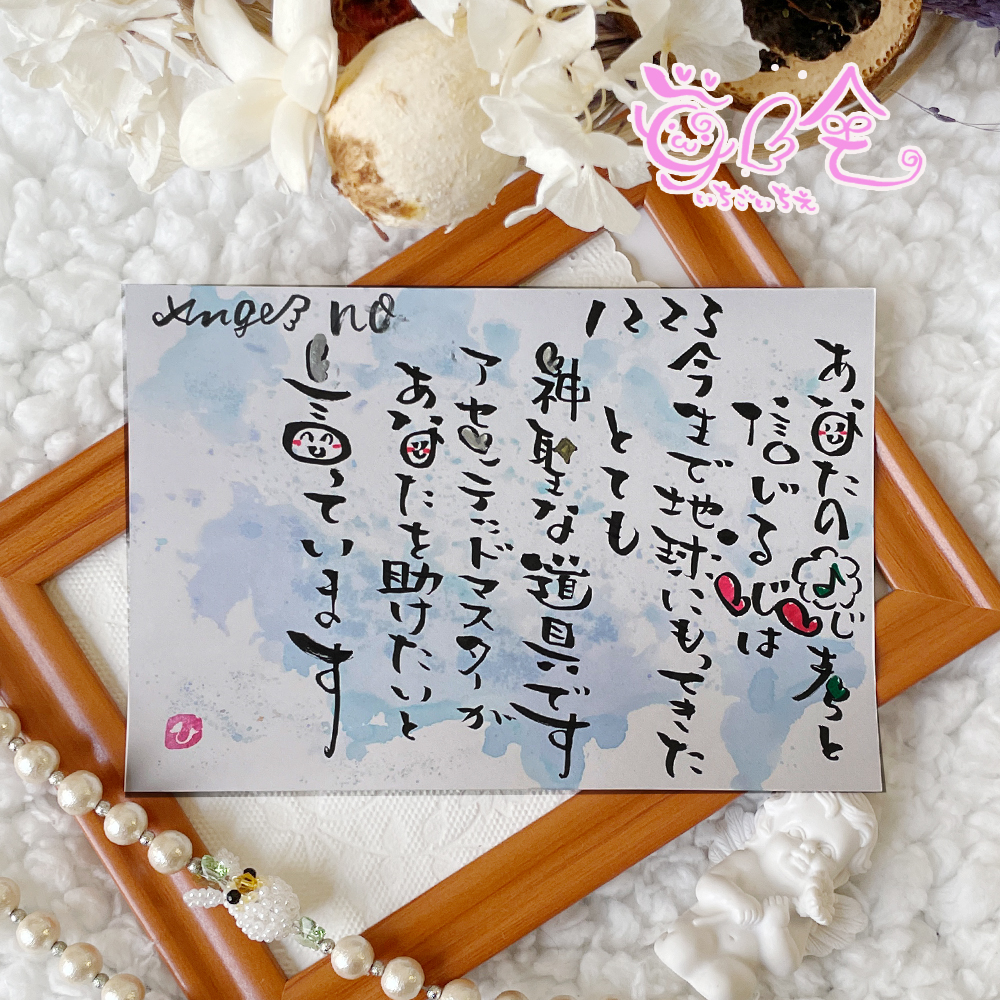 いちごいちえ
Angel no 1223
あなたの じ と
信じる心は
今生で地球にもってきた
とても
神聖な道具です
アセンデッドマスターが
あなたを助けたいと
言っています